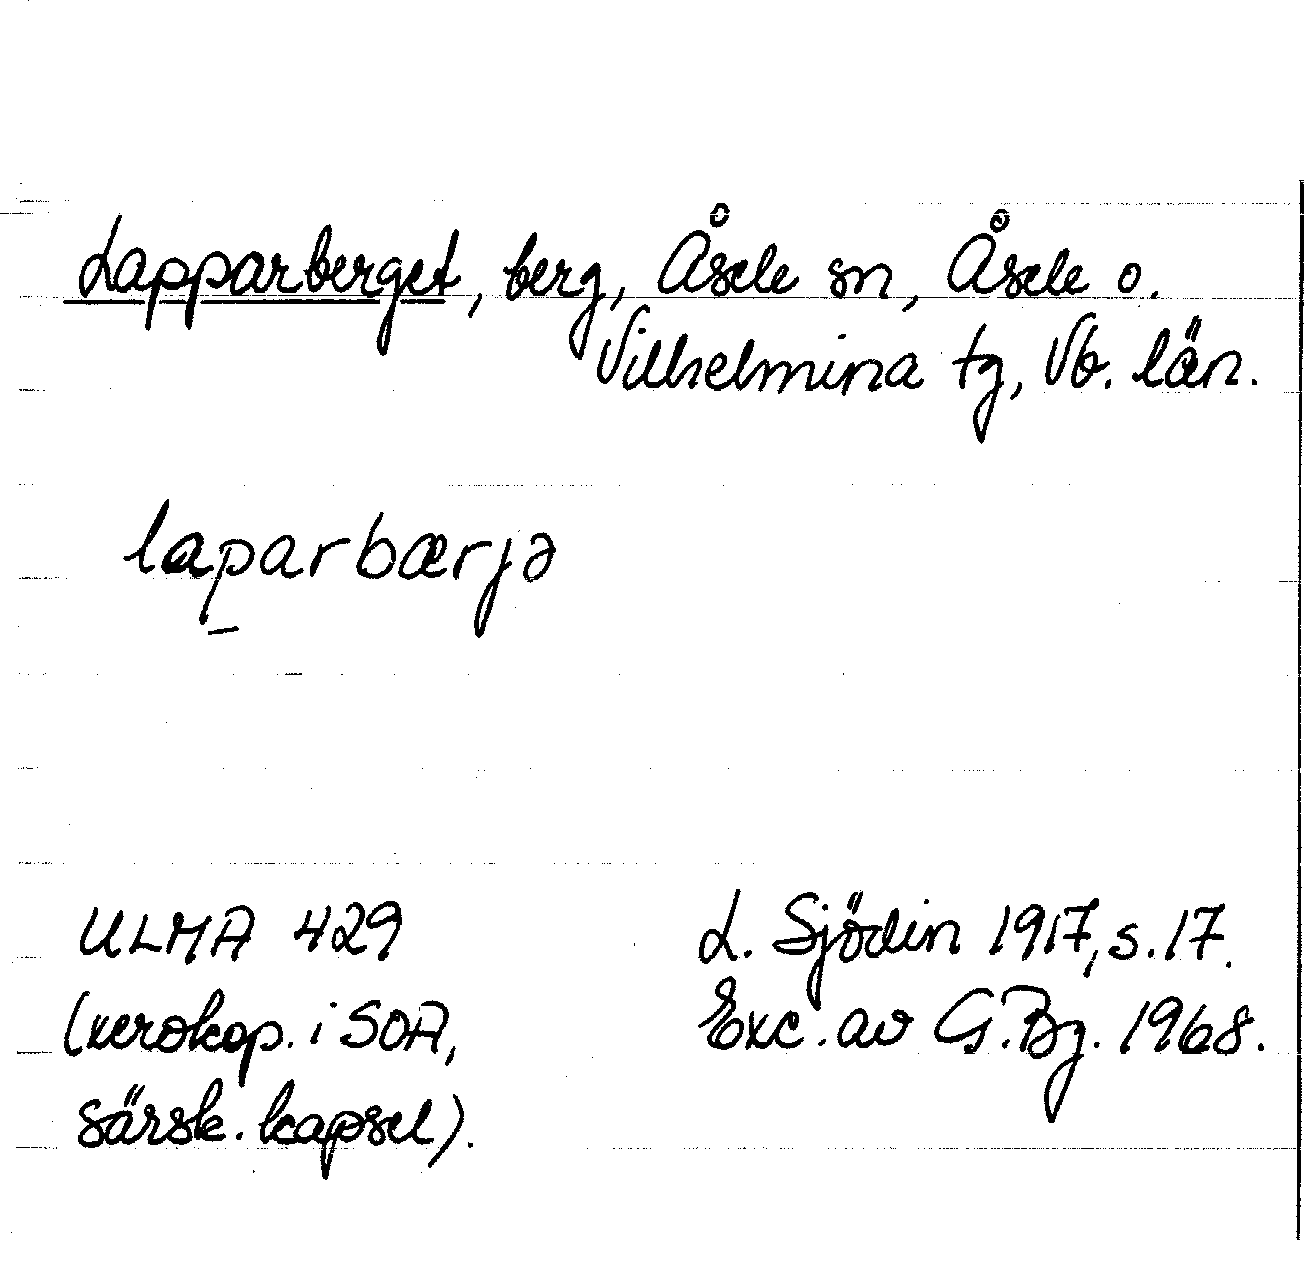 Lapparberget, berg, Åsele sn, Åsele o.
Vilhelmina tg, Vb. län.
lap̱arbærjə
ULMA 429
(xerokop. i SOA,
särsk. kapsel).
L. Sjödin 1917, s. 17.
Exc. av G. Bg. 1968.